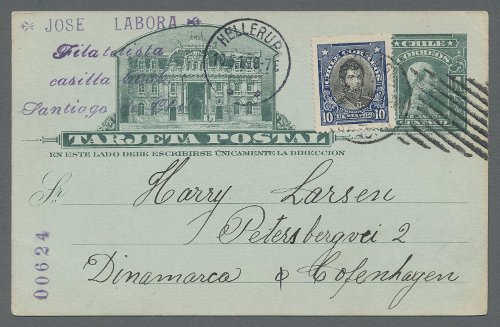 JOSE LABORA
Filatelista
casilla
Santiago de Chile
HELLERUP
CHILE CORREOS
10 CENTAVOS 10
CHILE
CORREOS
TARJETA POSTAL
EN ESTE LADO DEBE ESCRIBIRSE ÚNICAMENTE LA DIRECCION
Sr. Harry Larsen
Petersbergvei 2
Dinamarca Cofenhagen
00624